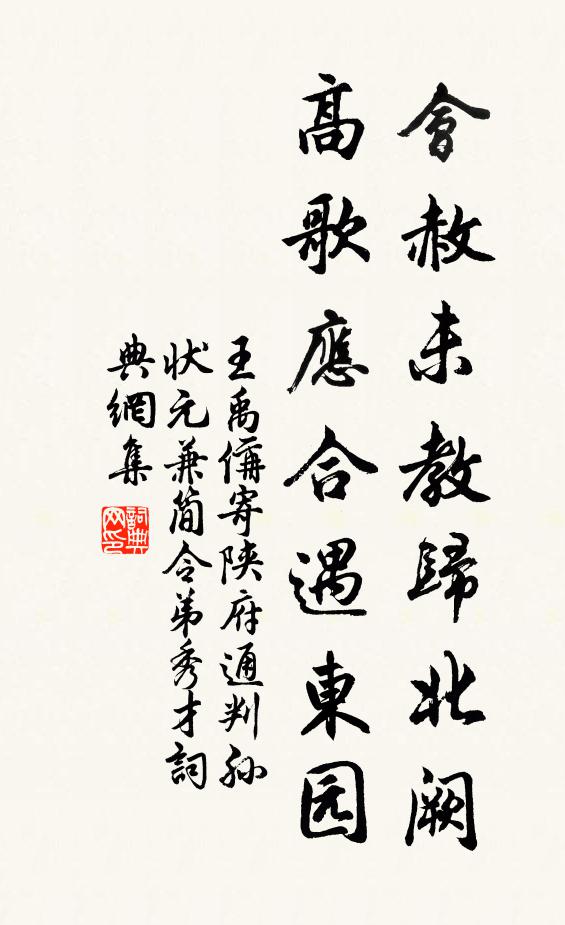 會赦未教歸北阙
高歌應合遇東园
王禹偁寄陝府通判孙
状元兼简令弟秀才詞
典網集
詞典网印